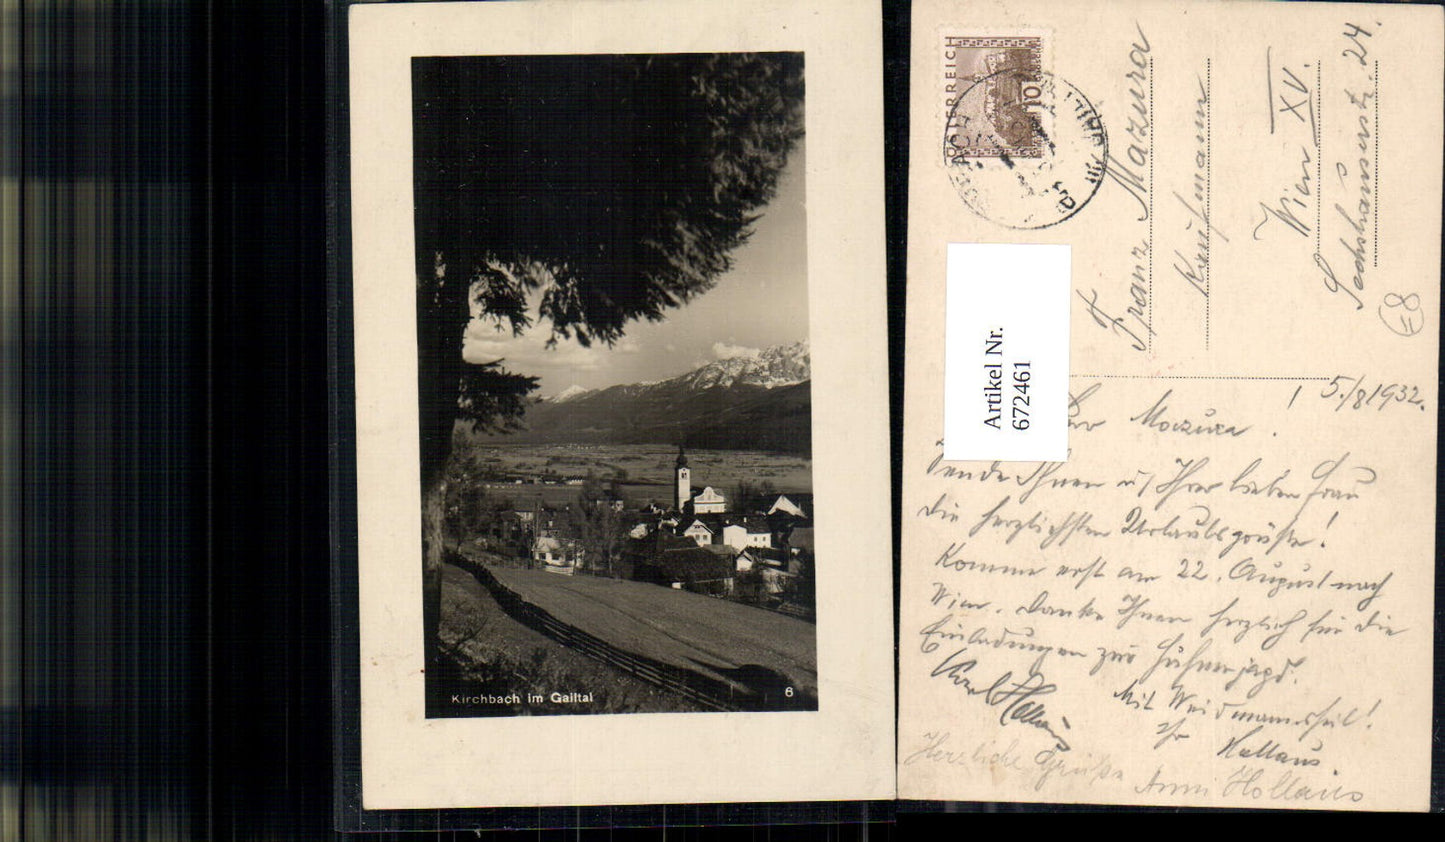 Kirchbach im Gailtal
6
ÖSTERREICH
10
Franz Mazura
Kaufmann
Wien XV.
Sechshauserstr. 24.
8
Artikel Nr.
672461
5./8 1932.
Mazura.
Ihnen u. Ihrer lieben Frau
die herzlichsten Urlaubsgrüße!
Komme erst am 22. August nach
Wien. Danke Ihnen herzlich für die
Einladungen zur Hühnerjagd.
Mit Weidmannsheil!
Ihr Hollaus.
Karl Hollaus
Herzliche Grüße Anni Hollaus